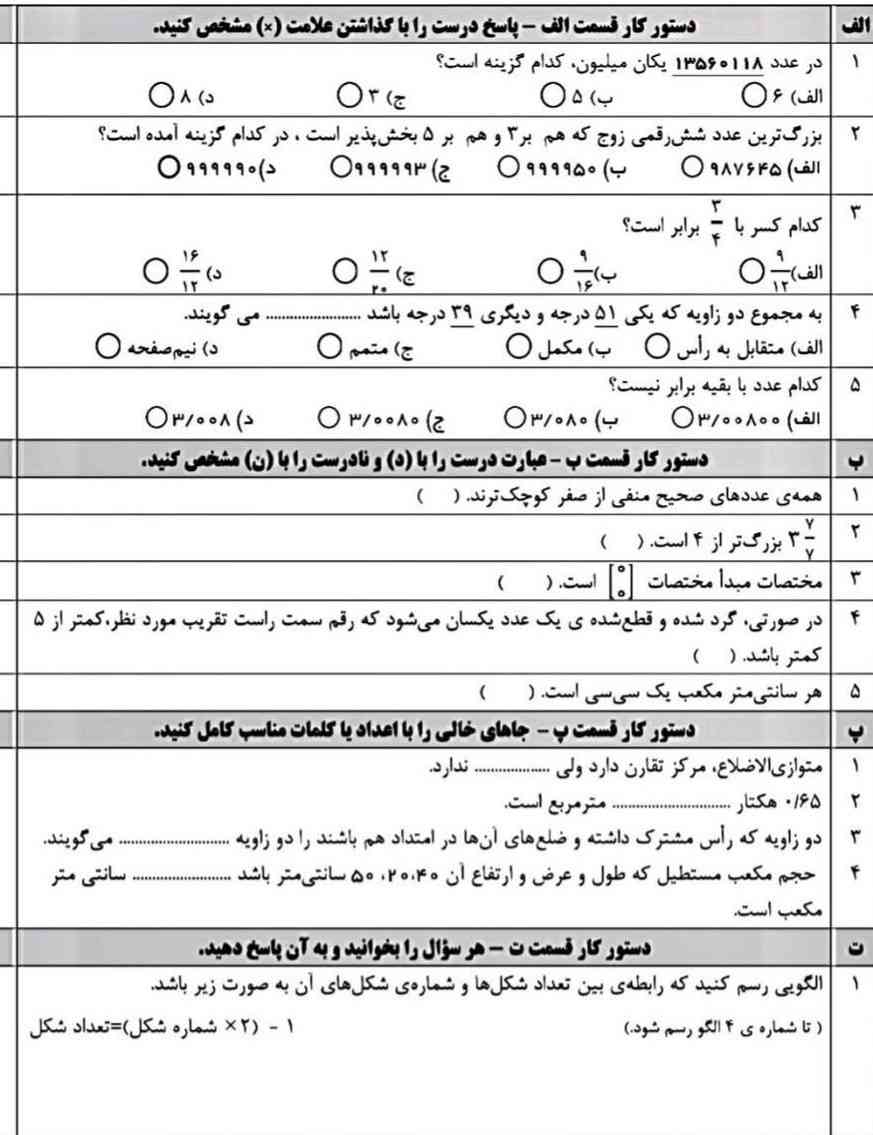 الف دستور کار قسمت الف – پاسخ درست را با گذاشتن علامت (×) مشخص کنید.
۱ در عدد ۱۳۵۶۰۱۱۸ یکان میلیون، کدام گزینه است؟
الف) ۶ ب) ۵ ج) ۳ د) ۸
۲ بزرگ‌ترین عدد شش‌رقمی زوج که هم بر۳ و هم بر ۵ بخش‌پذیر است ، در کدام گزینه آمده است؟
الف) ۹۸۷۶۴۵ ب) ۹۹۹۹۵۰ ج) ۹۹۹۹۹۳ د) ۹۹۹۹۹۰
۳ کدام کسر با ۳/۴ برابر است؟
الف) ۹/۱۲ ب) ۹/۱۶ ج) ۱۲/۲۰ د) ۱۶/۱۲
۴ به مجموع دو زاویه که یکی ۵۱ درجه و دیگری ۳۹ درجه باشد ........................ می گویند.
الف) متقابل به رأس ب) مکمل ج) متمم د) نیم‌صفحه
۵ کدام عدد با بقیه برابر نیست؟
الف) ۳/۰۰۸۰۰ ب) ۳/۰۸۰ ج) ۳/۰۰۸۰ د) ۳/۰۰۸
ب دستور کار قسمت ب – عبارت درست را با (د) و نادرست را با (ن) مشخص کنید.
۱ همه‌ی عددهای صحیح منفی از صفر کوچک‌ترند. ( )
۲ ۳ ۷/۷ بزرگ‌تر از ۴ است. ( )
۳ مختصات مبدأ مختصات [۰ ۰] است. ( )
۴ در صورتی، گرد شده و قطع‌شده ی یک عدد یکسان می‌شود که رقم سمت راست تقریب مورد نظر،کمتر از ۵
کمتر باشد. ( )
۵ هر سانتی‌متر مکعب یک سی‌سی است. ( )
پ دستور کار قسمت پ – جاهای خالی را با اعداد یا کلمات مناسب کامل کنید.
۱ متوازی‌الاضلاع، مرکز تقارن دارد ولی ................... ندارد.
۲ ۰/۶۵ هکتار .............................. مترمربع است.
۳ دو زاویه که رأس مشترک داشته و ضلع‌های آن‌ها در امتداد هم باشند را دو زاویه ............................ می‌گویند.
۴ حجم مکعب مستطیل که طول و عرض و ارتفاع آن ۲۰،۴۰، ۵۰ سانتی‌متر باشد ......................... سانتی متر
مکعب است.
ت دستور کار قسمت ت – هر سؤال را بخوانید و به آن پاسخ دهید.
۱ الگویی رسم کنید که رابطه‌ی بین تعداد شکل‌ها و شماره‌ی شکل‌های آن به صورت زیر باشد.
( تا شماره ی ۴ الگو رسم شود.) ۱ - (۲× شماره شکل)=تعداد شکل